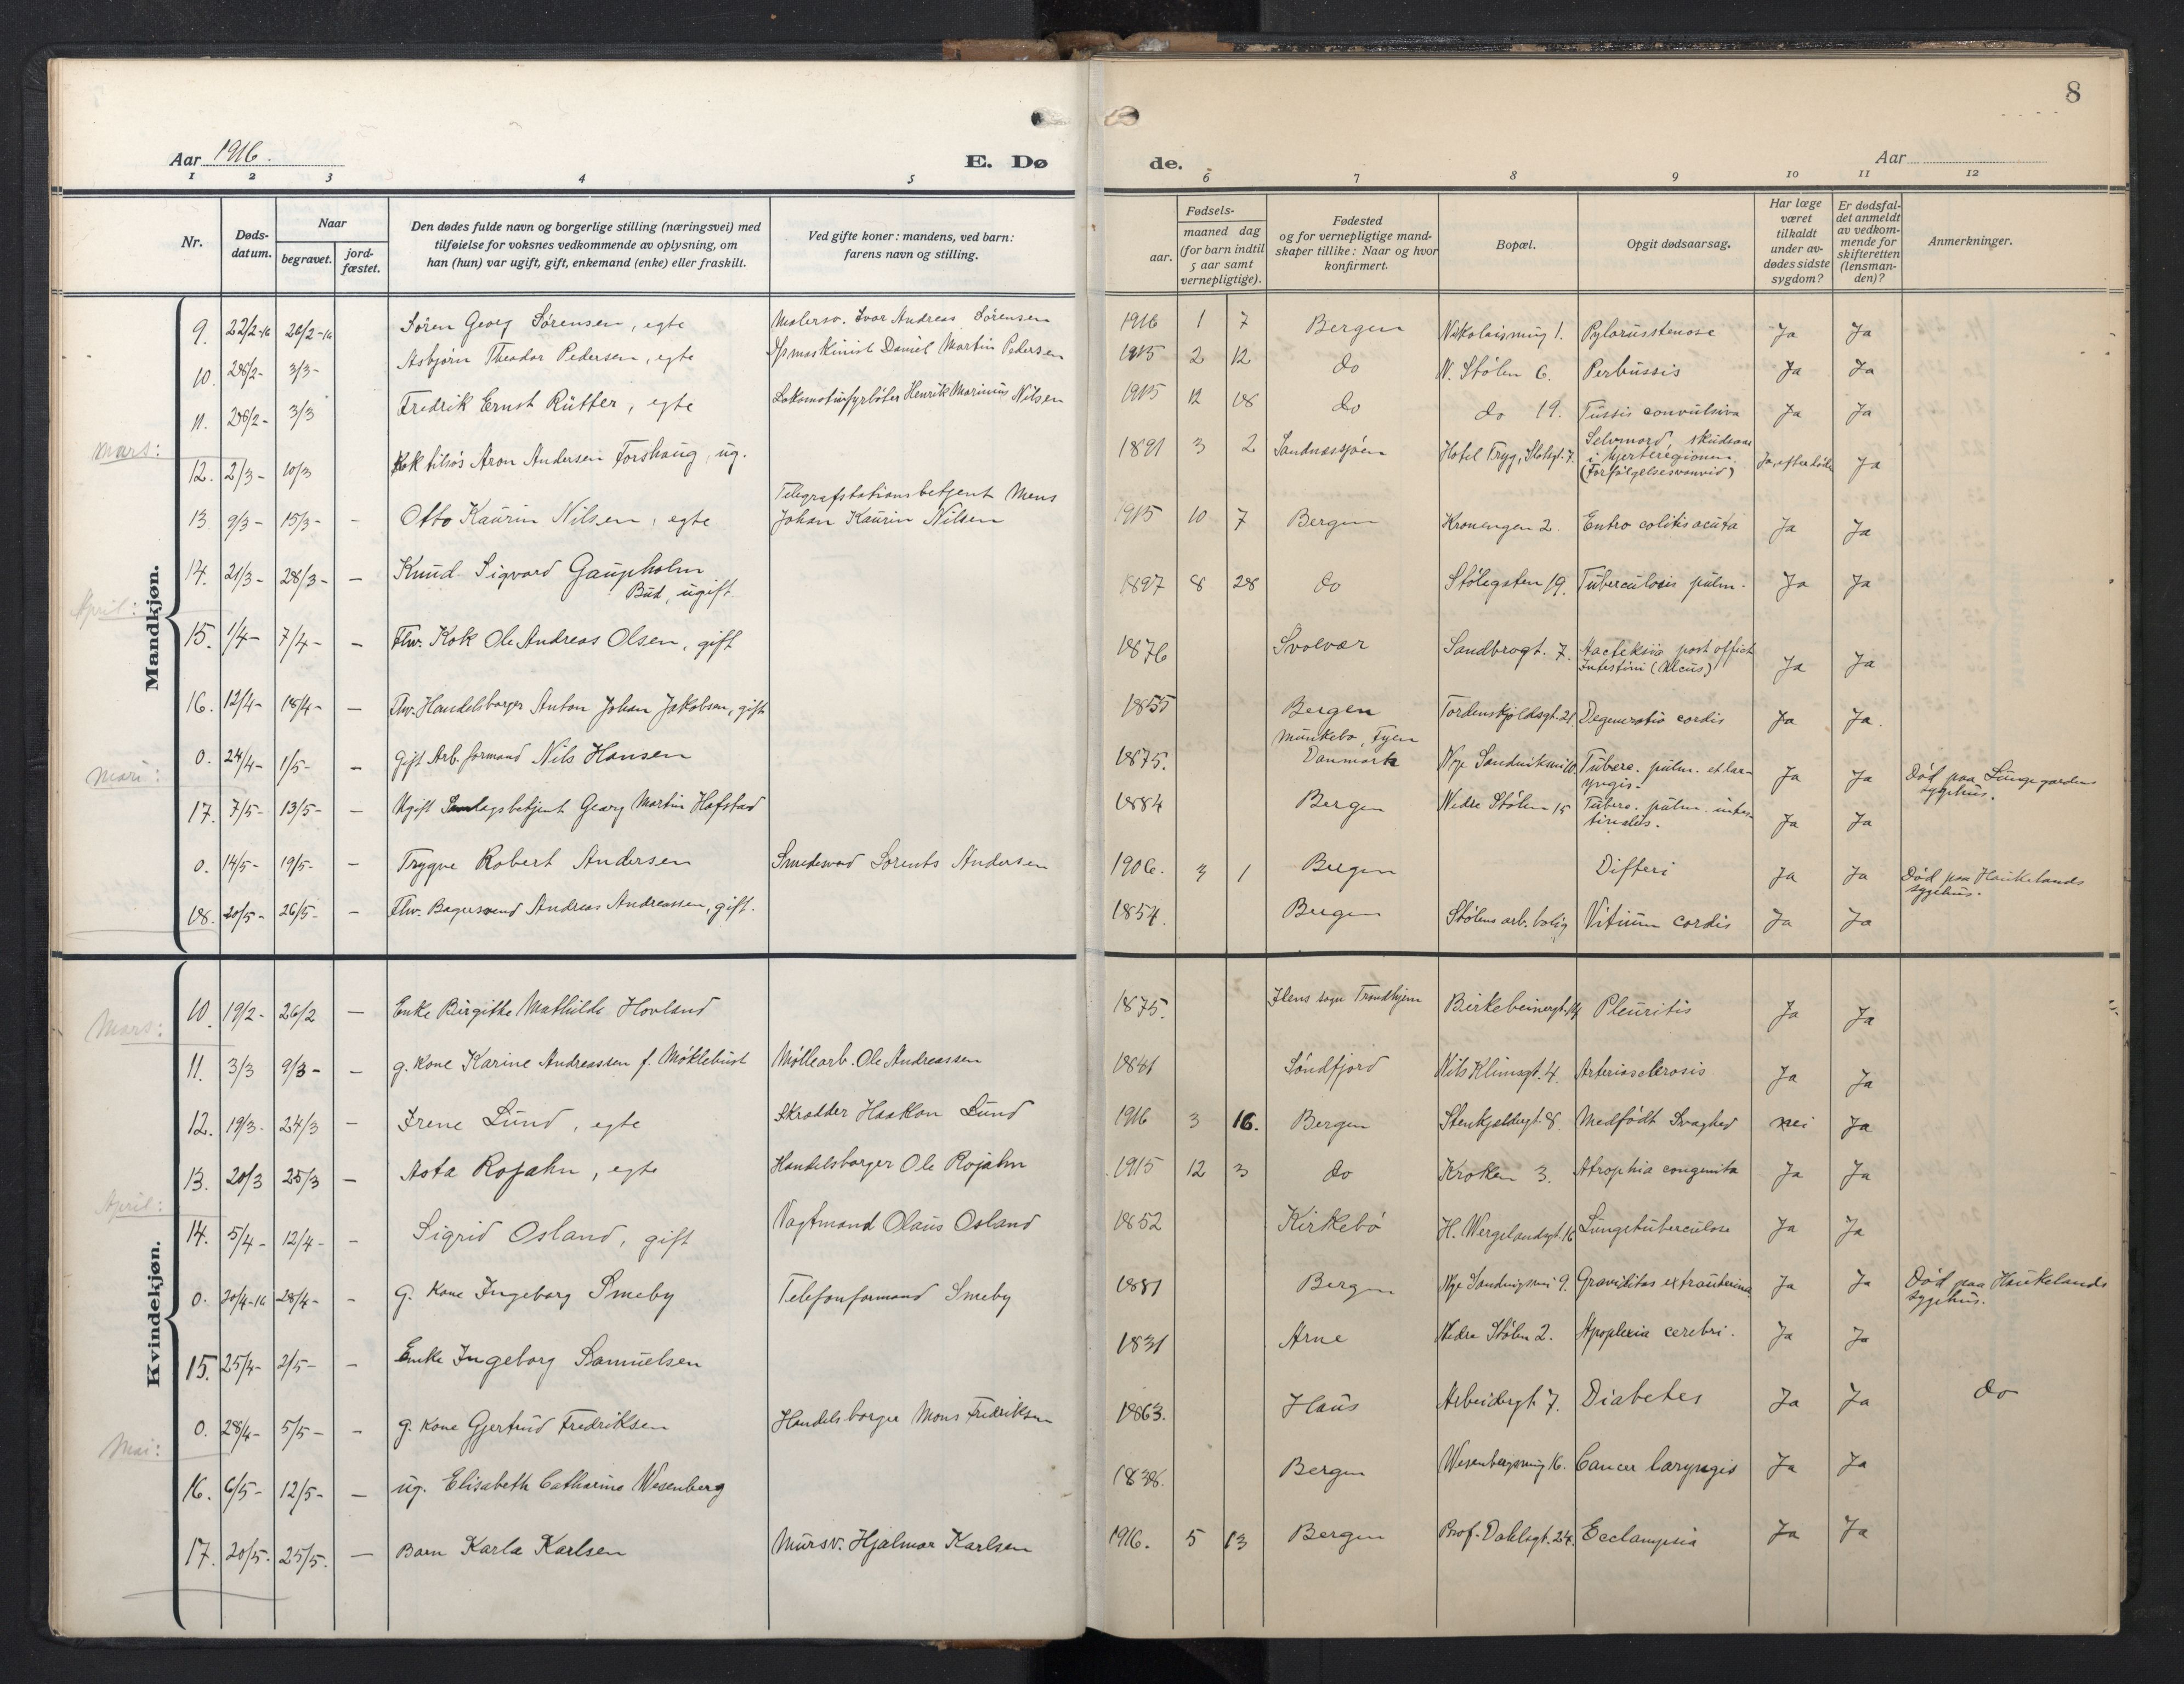 8
Aar 1916.
E. Dø
de.
Aar
1 2 3 4 5 6 7 8 9 10 11 12
Nr.
Døds-
datum.
Naar
begravet.
jord-
fæstet.
Den dødes fulde navn og borgerlige stilling (næringsvei) med
tilføielse for voksnes vedkommende av oplysning, om
han (hun) var ugift, gift, enkemand (enke) eller fraskilt.
Ved gifte koner: mandens, ved barn:
farens navn og stilling.
aar.
Fødsels-
maaned dag
(for barn indtil
5 aar samt
vernepligtige).
Fødested
og for vernepligtige mand-
skaper tillike: Naar og hvor
konfirmert.
Bopæl.
Opgit dødsaarsag.
Har læge
været
tilkaldt
under av-
dødes sidste
sygdom?
Er dødsfal-
det anmeldt
av vedkom-
mende for
skifteretten
(lensman-
den)?
Anmerkninger.
Mandkjøn.
9. 22/2-16 26/2-16 Søren Georg Sørensen, egte Malersv. Ivar Andreas Sørensen 1916 1 7 Bergen Nikolaismug 1. Pylorusstenose Ja Ja
10. 28/2- 3/3- Asbjørn Theodor Pedersen, egte Daniel Martin Pedersen 1915 2 12 do N. Stølen 6. Perbussis Ja Ja
11. 28/2- 3/3 Fredrik Ernst Rütter, egte Lokomotivfyrbøter Henrik Marinius Nilsen 1915 12 18 do do 19. Tussis convulsiva Ja Ja
Mars:
12. 2/3- 10/3 Kok tilsøs Aron Andersen Forshaug, ug. 1891 3 2 Sandnessjøen Hotel Tryg, Slotsgt. 7 Selvmord, skudsaar
i hjerteregionen.
(Forfølgelsesvanvid) Ja, efter døden Ja
13. 9/3- 15/3- - Otto Kaurin Nilsen, egte Telegrafstationsbetjent Mens
Johan Kaurin Nilsen 1915 10 7 Bergen Kronengen 2. Entro colitis acuta Ja Ja
14. 21/3- 28/3- - Knud Sigvard Gaupholm
Bud, ugift 1897 8 28 do Stølegaten 19. Tuberculosis pulm. Ja Ja
April:
15. 1/4- 7/4- - Fhv. Kok Ole Andreas Olsen, gift 1876 Svolvær Sandbrogt. 7. post
Intestini (Ulcus) Ja Ja
16. 12/4- 18/4- - Fhv. Handelsborger Anton Johan Jakobsen, gift 1855 Bergen Tordenskjoldsgt. 21 Degeneratio cordis Ja Ja.
0. 24/4- 1/5- - Gift Arb. formand Nils Hansen 1875. Munkebo, Fyen
Danmark Nye Sandviksvei 10. Tuberc. pulm. et lar-
yngis. Ja Ja Død paa Lungegaarden
sygehus.
Mai:
17. 7/5- 13/5- - Ugift Samlagsbetjent Georg Martin Hafstad 1884 Bergen Nedre Stølen 15 Tuberc. pulm. intes-
tinalis. Ja Ja
0. 14/5- 19/5- - Trygve Robert Andersen Smedesvend Lorents Andersen 1906. 3 1 Bergen Difteri Ja Ja Død paa Haukelands
sygehus.
18. 20/5- 26/5- - Fhv. Bagersvend Andreas Andreassen, gift. 1854. Bergen Stølens arb. bolig Vitium cordis Ja Ja
Kvindekjøn.
10. 19/2- 26/2 - Enke Birgitte Mathilde Hovland 1875. Ilens sogn Trondhjem Birkebeinergt. 14 Pleuritis Ja Ja
Mars:
11. 3/3 9/3- - g. kone Karine Andreassen f. Møklebust Møllearb. Ole Andreassen 1841 Søndfjord Nils Klimsgt. 4. Arteriosclerosis Ja Ja
12. 19/3- 24/3 - Irene Lund, egte Skrædder Haakon Lund 1916 3 16. Bergen Stenkjeldergt. 8. Medfødt Svaghed nei Ja
13. 20/3 25/3 - Asta Rojahn, egte Handelsborger Ole Rojahn 1915 12 3 do Kroken 3. Atrophia congenita Ja Ja
April:
14. 5/4- 12/4- - Sigrid Osland, gift Vagtmand Olaus Osland 1852 Kirkebø H. Wergelandsgt. 16 Lungetuberculose Ja Ja
0. 20/4-16 28/4- - g. kone Ingeborg Smeby Telefonformand Smeby 1881 Bergen Nye Sandvigsvei 9. Graviditas extrauterina Ja Ja Død paa Haukelands
sygehus.
15. 25/4- 2/5- - Enke Ingeborg Samuelsen 1831 Arne Nedre Stølen 2. Apoplexia cerebri. Ja Ja
0. 28/4- 5/5- - g. kone Gjertrud Fredriksen Handelsborger Mons Fredriksen 1863. Haus Arbeidergt. 7. Diabetes Ja Ja do
Mai:
16. 6/5- 12/5- - ug. Elisabeth Catharina Wesenberg 1838. Bergen Wesenbergsmug 16. Cancer laryngis Ja Ja
17. 20/5. 25/5. - Barn Karla Karlsen Mursv. Hjalmar Karlsen 1916. 5 13 Bergen Prof. Dahlsgt. 24. Ecclampsia Ja Ja